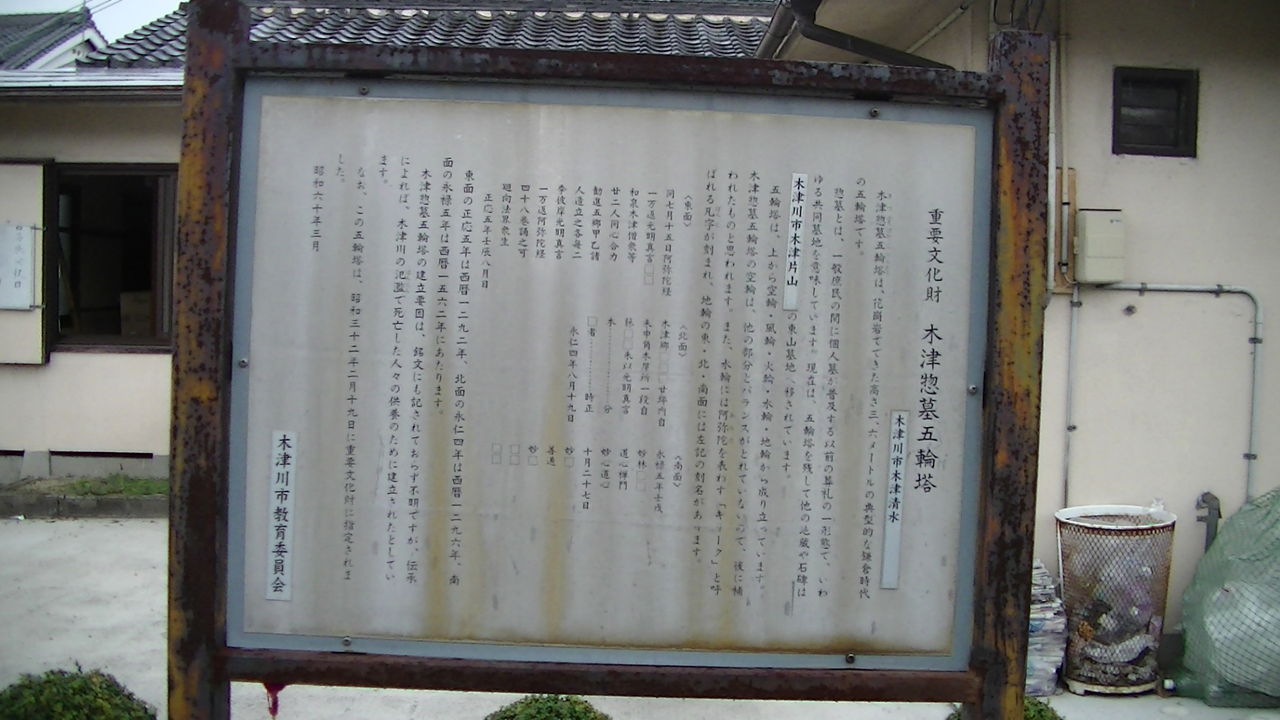 重要文化財 木津惣墓五輪塔
木津川市木津清水
木津惣墓五輪塔は、花崗岩でできた高さ三、六メートルの典型的な鎌倉時代
の五輪塔です。
惣墓とは、一般庶民の間に個人墓が普及する以前の葬礼の一形態で、いわ
ゆる共同墓地を意味しています。現在は、五輪塔を残して他の地蔵や石碑は
木津川市木津片山の東山墓地へ移されています。
五輪塔は、上から空輪・風輪・火輪・水輪・地輪から成り立っています。
木津惣墓五輪塔の空輪は、他の部分とバランスがとれていないので、後に補
われたものと思われます。また、水輪には阿弥陀を表わす「キリーク」と呼
ばれる凡字が刻まれ、地輪の東・北・南面には左記の刻名があります。
〈東面〉
同七月十五日阿弥陀経
一万遍光明真言□□
和泉木津僧衆等
廿二人同心合力
勧進五郷甲乙諸
人造立之各毎二
季彼岸光明真言
一万遍阿弥陀経
四十八巻誦之可
廻向法界衆生
正応五年壬辰八月日
〈北面〉
木津郷□□廿坪内自
未申角木屋所一段自
□□未以光明真言
本………分
□者………時正
永仁四年八月十九日
〈南面〉
永禄五年壬戌
妙林□□
道心禅門
妙心道心
十月二十七日
妙□
善道
妙□
□□
□□
東面の正応五年は西暦一二九二年、北面の永仁四年は西暦一二九六年、南
面の永禄五年は西暦一五六二年にあたります。
木津惣墓五輪塔の建立要因は、銘文にも記されておらず不明ですが、伝承
によれば、木津川の氾濫で死亡した人々の供養のために建立されたとしてい
ます。
なお、この五輪塔は、昭和三十二年二月十九日に重要文化財に指定されま
した。
昭和六十年三月
木津川市教育委員会